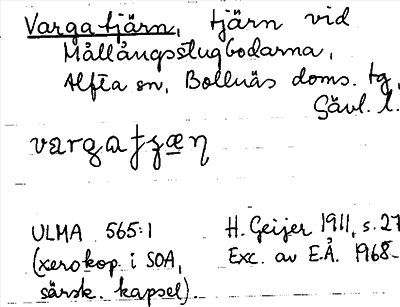 Vargatjärn, tjärn vid
Mållångsstugbodarna,
Alfta sn, Bollnäs doms. tg,
Gävl. l.
ULMA 565:1
(xerokop. i SOA,
särsk. kapsel).
H. Geijer 1911, s. 27
Exc. av E.Å. 1968